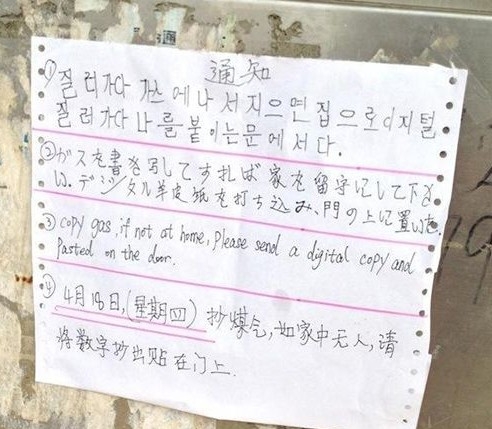 通知
① 질러가다 가스 에나서지으면집으로이지털
질러가다나를붙이는문에서다.
② ガスを書き写してすれば家を留守にして下さ
い.デジタル羊皮紙を打ち込み、門の上に置いた.
③ copy gas, if not at home, please send a digital copy and
Pasted on the door.
④ 4月18日,(星期四) 抄煤气,如家中无人,请
将数字抄出贴在门上.